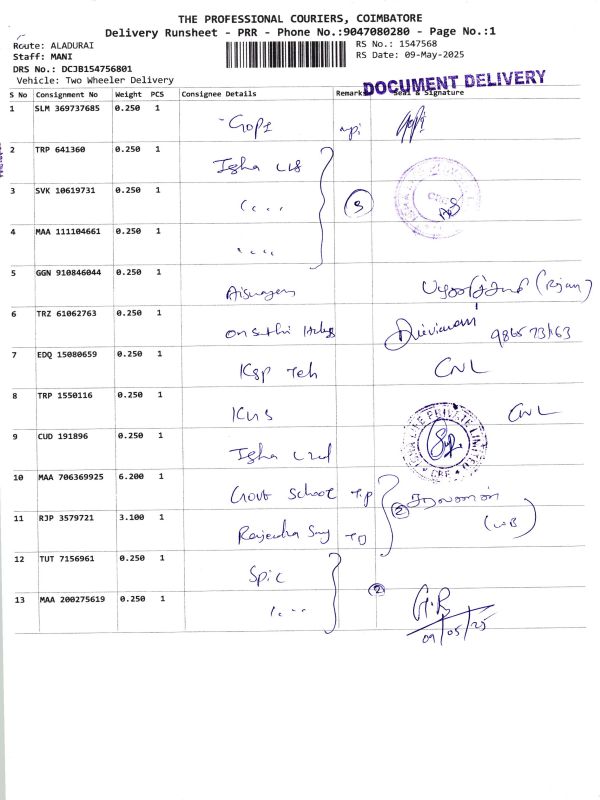 THE PROFESSIONAL COURIERS, COIMBATORE
Delivery Runsheet - PRR - Phone No.:9047080280 - Page No.:1
Route: ALADURAI
Staff: MANI
DRS No.: DCJB154756801
Vehicle: Two Wheeler Delivery
RS No.: 1547568
RS Date: 09-May-2025
DOCUMENT DELIVERY
S No Consignment No Weight PCS Consignee Details Remarks Seal & Signature
1 SLM 369737685 0.250 1 Gopi
2 TRP 641360 0.250 1 Isha
3 SVK 10619731 0.250 1 " 3
4 MAA 111104661 0.250 1 "
5 GGN 910846044 0.250 1
6 TRZ 61062763 0.250 1
7 EDQ 15080659 0.250 1 CNL
8 TRP 1550116 0.250 1 CNL
9 CUD 191896 0.250 1 Isha
PRIVATE LIMITED
10 MAA 706369925 6.200 1 Govt School T.p 2
11 RJP 3579721 3.100 1
12 TUT 7156961 0.250 1 Spic
13 MAA 200275619 0.250 1 " 2 G.R
09/05/25